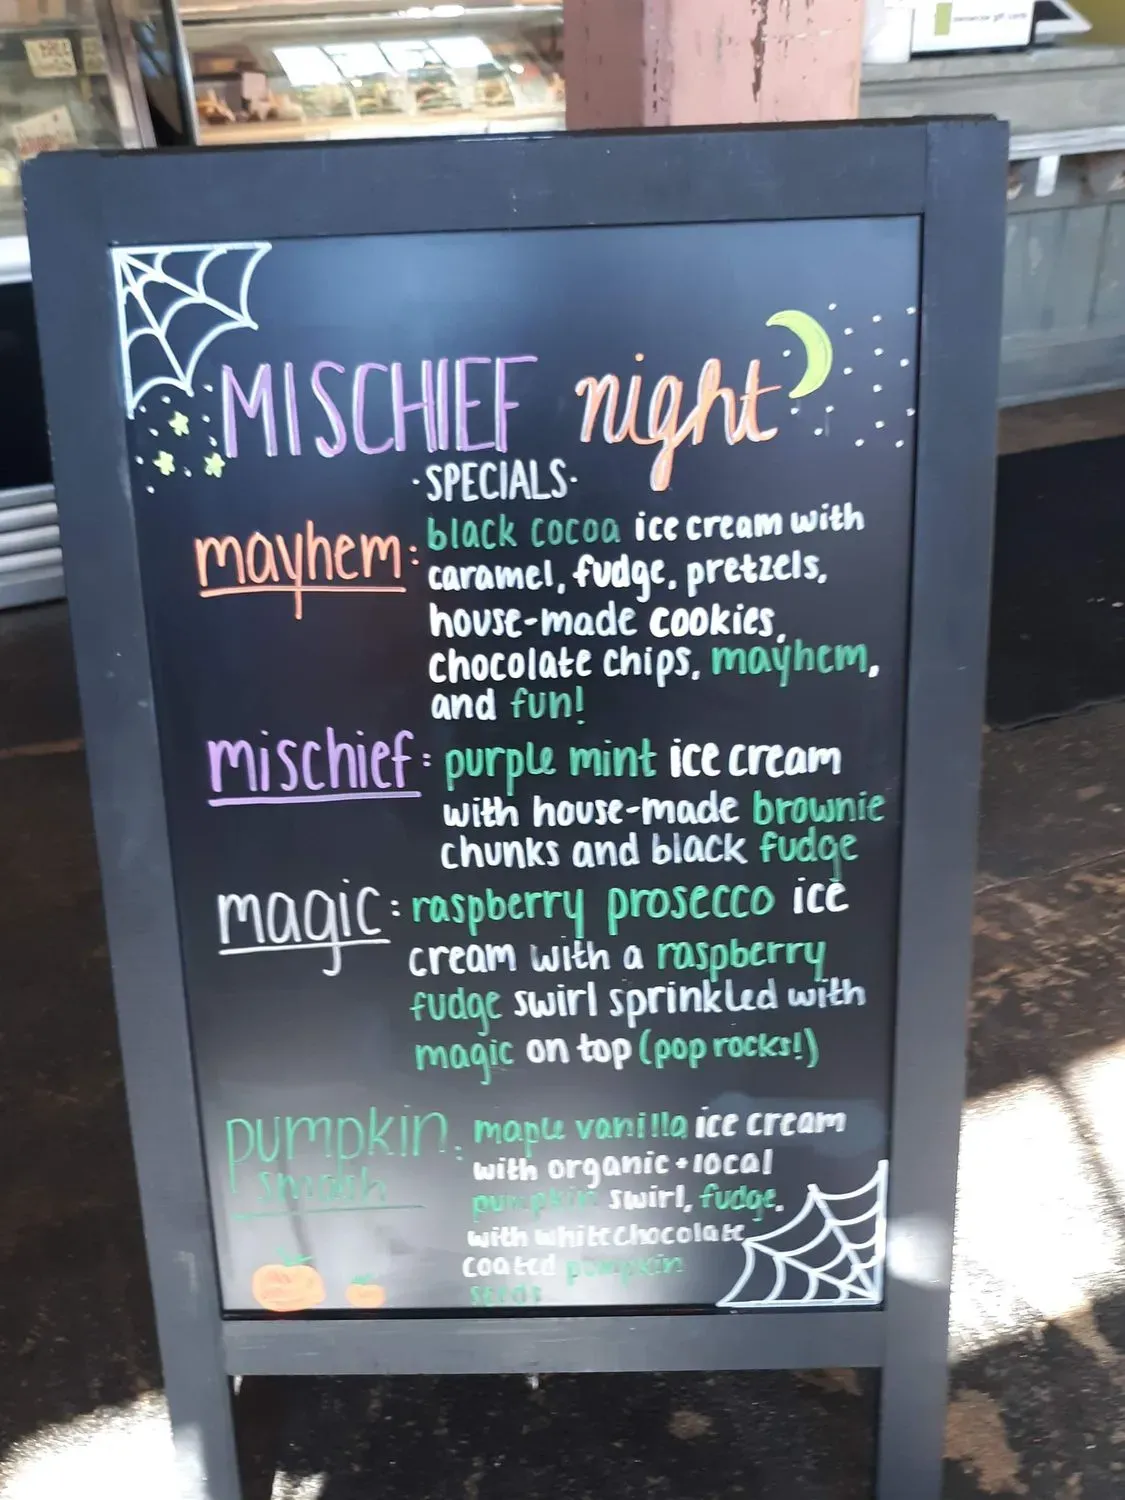 MISCHIEF night
·SPECIALS·
mayhem: black cocoa ice cream with
caramel, fudge, pretzels,
house-made cookies,
chocolate chips, mayhem,
and fun!
mischief: purple mint ice cream
with house-made brownie
chunks and black fudge
magic: raspberry prosecco ice
cream with a raspberry
fudge swirl sprinkled with
magic on top (pop rocks!)
pumpkin smash: maple vanilla ice cream
with organic + local
pumpkin swirl, fudge,
with white chocolate
coated pumpkin
seeds